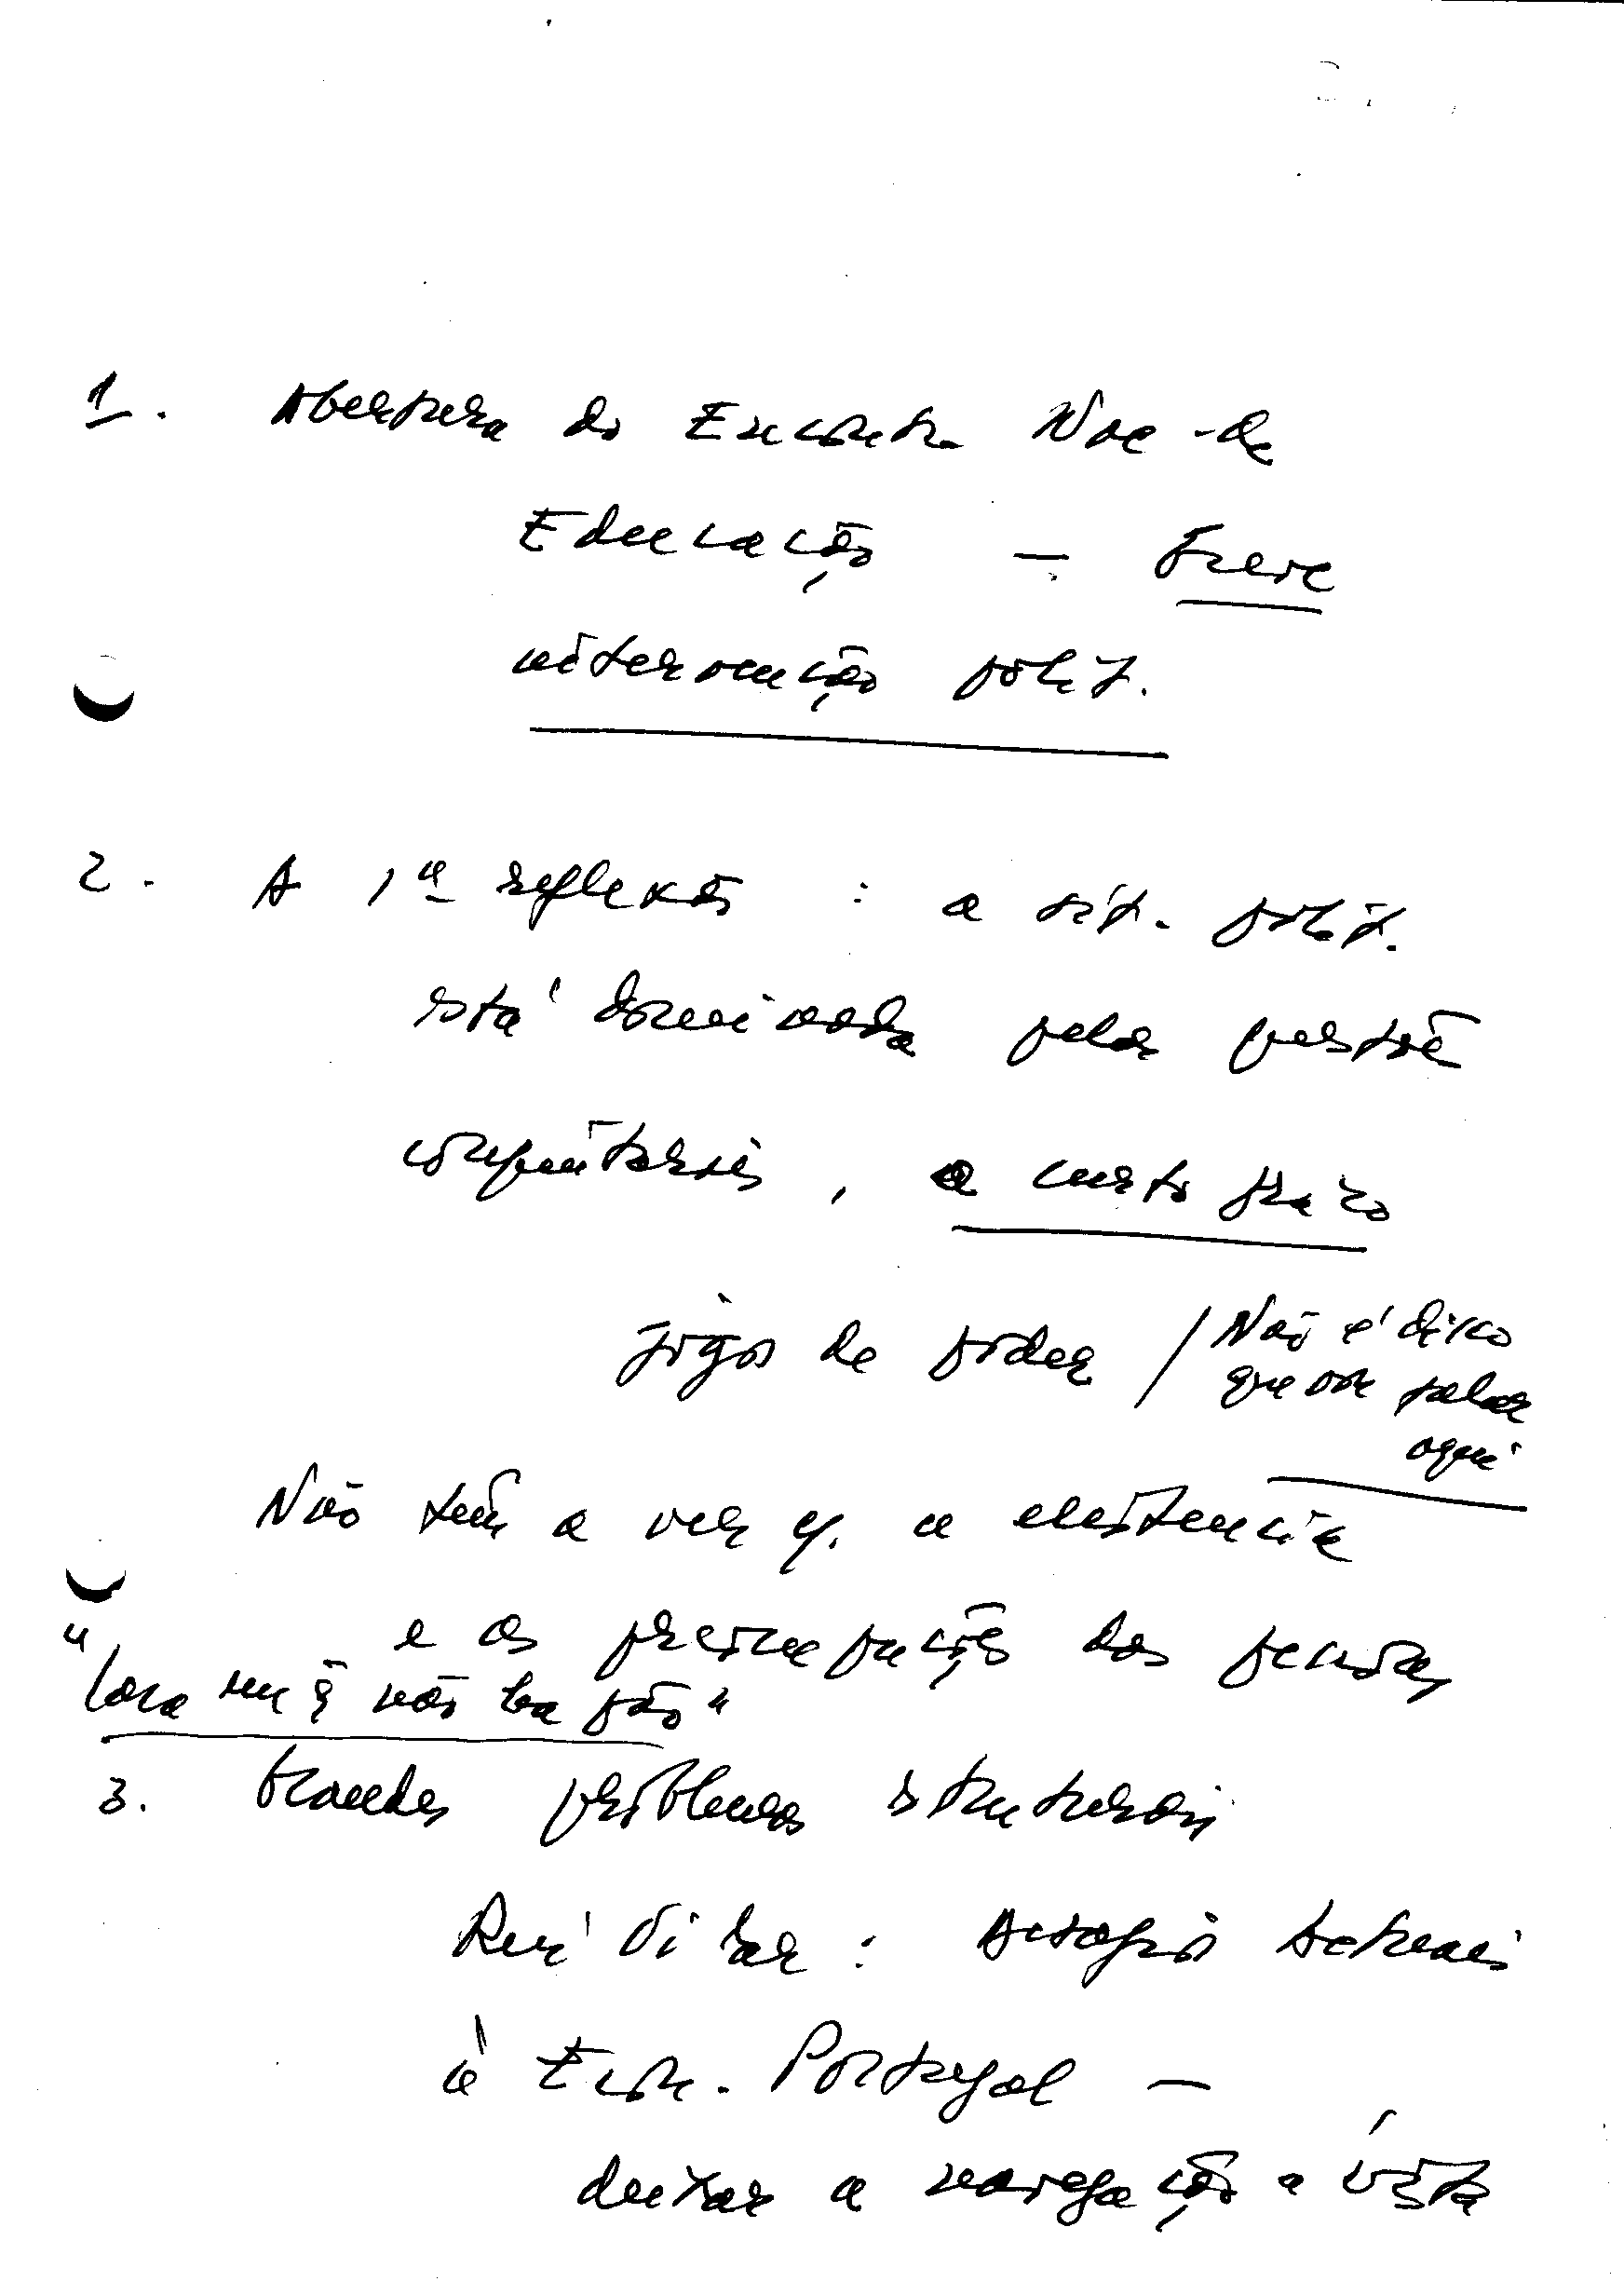 1. Abertura do Encontro Nac. de
Educação — breve
intervenção polít.
2. A 1ª reflexão : a sit. polít.
está dominada pelas questões
conjunturais, a curto prazo
jogos de poder / Não é disso
que vou falar
aqui
Não têm a ver c/. a existência
e as preocupações das pessoas
"Casa em q não há pão"
3. Grandes problemas estruturais
Rui Vilar : Desafios Actuais
à Econ. Portugal —
deixar a navegação à vista